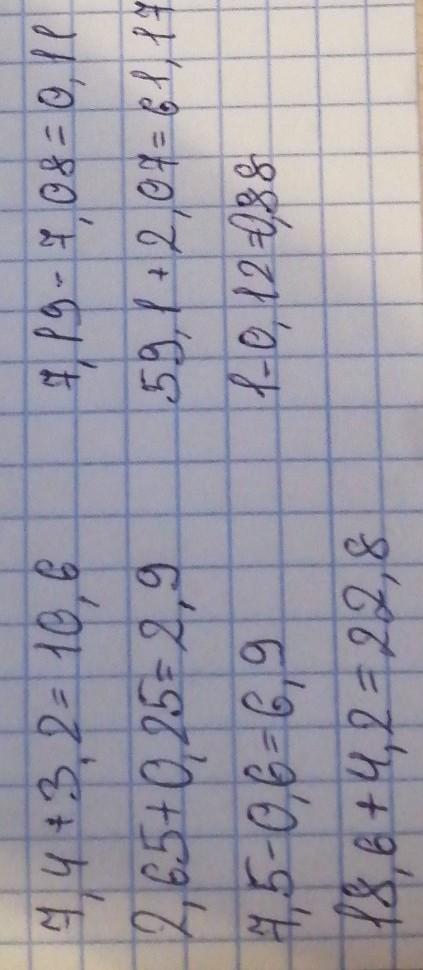 7,4+3,2=10,6
2,65+0,25=2,9
7,5-0,6=6,9
18,6+4,2=22,8
7,19-7,08=0,11
59,1+2,07=61,17
1-0,12=0,88